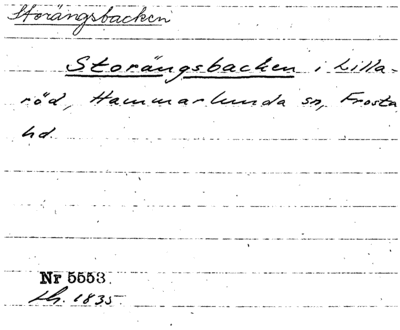 Storängsbacken
Storängsbacken i Lilla-
röd, Hammarlunda sn, Frosta
hd.
Nr 5553.
Lh. 1835.